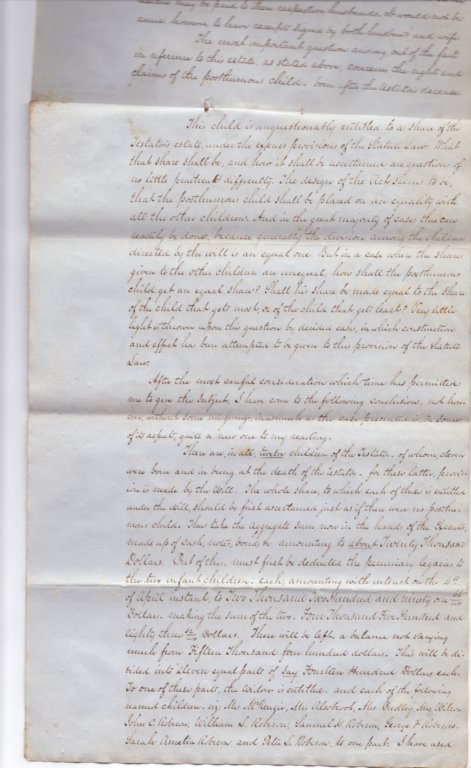 may be paid to their respective husbands. It would not be
some horror to have receipts signed by both husband and wife
The most important question arising out of the facts
in reference to this estate, as stated above, concerns the right and
claims of the posthumous child - born after the testators decease
This child is unquestionably entitled to a share of the
Testator's estate, under the express provisions of the Statute Law. What
that share shall be, and how it shall be ascertained are questions of
no little practical difficulty. The design of the Act seems to be,
that the posthumous child shall be placed on an equality with
all the other children. And in the great majority of cases this can
readily be done, because generally the division among the children
directed by the will is an equal one. But in a case when the shares
given to the other children are unequal, how shall the posthumous
child get an equal share? Shall his share be made equal to the share
of the child that gets most, or of the child that gets least? Very little
light is thrown upon this question by decided cases, in which construction
and effect has been attempted to be given to this provision of the Statute
Law
After the most careful consideration which time has permitted
me to give the subject, I have come to the following conclusions, not how-
ever, without some misgivings inasmuch as the case presented is, in some
of its aspects, quite a new one to my reading.
There are, in all, twelve children of the Testator, of whom, eleven
were born and in being at the death of the testator - for these latter, provis-
ion is made by the Will. The whole share, to which each of these is entitled
under the Will, should be first ascertained just as if there were no posthu-
mous child. Thus take the aggregate sum, now in the hands of the Executor
made up of cash, notes, bonds &c amounting to about Twenty Thousand
Dollars. Out of this, must first be deducted the pecuniary legacies to
the two infant children, each, amounting with interest on the 4th
of April instant, to Two Thousand Two Hundred and ninety one 66/100
Dollars. making the sum of the two. Four Thousand Five Hundred and
eighty three 32/100 Dollars. There will be left a balance not varying
much from Fifteen Thousand four hundred dollars. This will be di-
vided into Eleven equal parts of say Fourteen Hundred Dollars each.
To one of these parts, the Widow is entitled. and each of the following
named children. viz: Mrs McKenzie, Mrs Alsobrook, Mrs Dudley, Mrs Wilson
John C. Robison, William S. Robison, Samuel H. Robison, George F. Robison.
Sarah Amelia Robison and Peter S. Robison, to one part. I have used